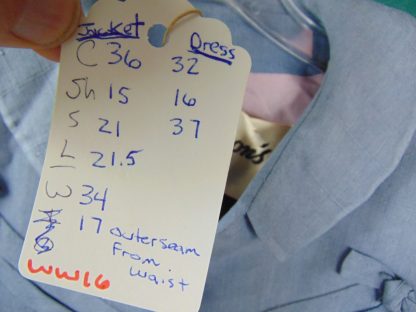 Jacket Dress
C 36 32
Sh 15 16
S 21 37
L 21.5
W 34
17 outerseam
From
waist
WW16